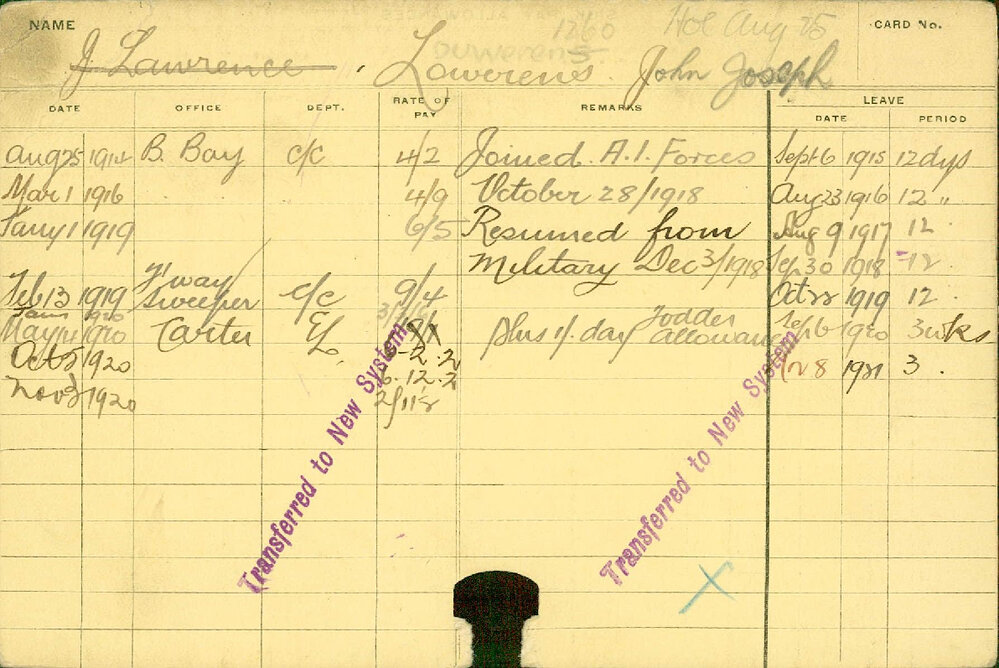 NAME
1260 Hol Aug 25
CARD No.
J Lawrence. Lowerens. John Joseph
DATE OFFICE DEPT. RATE OF PAY REMARKS LEAVE
DATE PERIOD
Aug 25 1914 B. Boy c/c 4/2 Joined A.I. Forces Sept 6 1915 12 dys
Mar 1 1916 4/9 October 28/1918 Aug 23 1916 12 "
Jany 1 1919 6/5 Resumed from Aug 9 1917 12
Military Dec 3/1918 Sep 30 1918 12
Feb 13 1919 T'way Sweeper c/c 9/4 Oct 22 1919 12.
1920 Carter plus 1/. day Fodder Allowance Sept 6 1920 3 wks
Oct 1920 2.2 8 1921 3.
6.12.2
Nov 1920
Transferred to New System
Transferred to New System